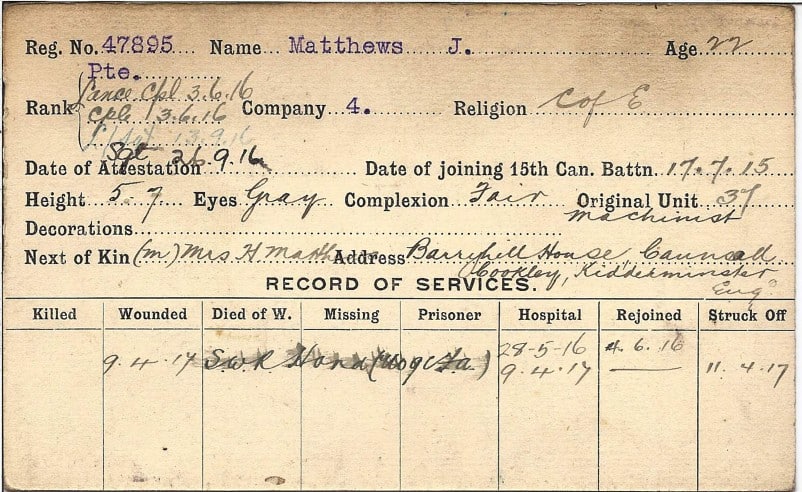 Reg. No. 47895 Name Matthews J. Age 22
Pte.
Rank Lance Cpl 3.6.16
Cpl 13.6.16 Company 4. Religion C of E
L/Sgt 13.9.16
Sgt 26.9.16
Date of Attestation Date of joining 15th Can. Battn. 17.7.15
Height 5.7 Eyes Gray Complexion Fair Original Unit 37
Decorations machinist
Next of Kin (m) Mrs H Matthews Address House,
Cookley, Kidderminster
Eng.
RECORD OF SERVICES.
Killed Wounded Died of W. Missing Prisoner Hospital Rejoined Struck Off
28-5-16 4.6.16
9.4.17 S.W.R Hand 9.4.17 — 11.4.17